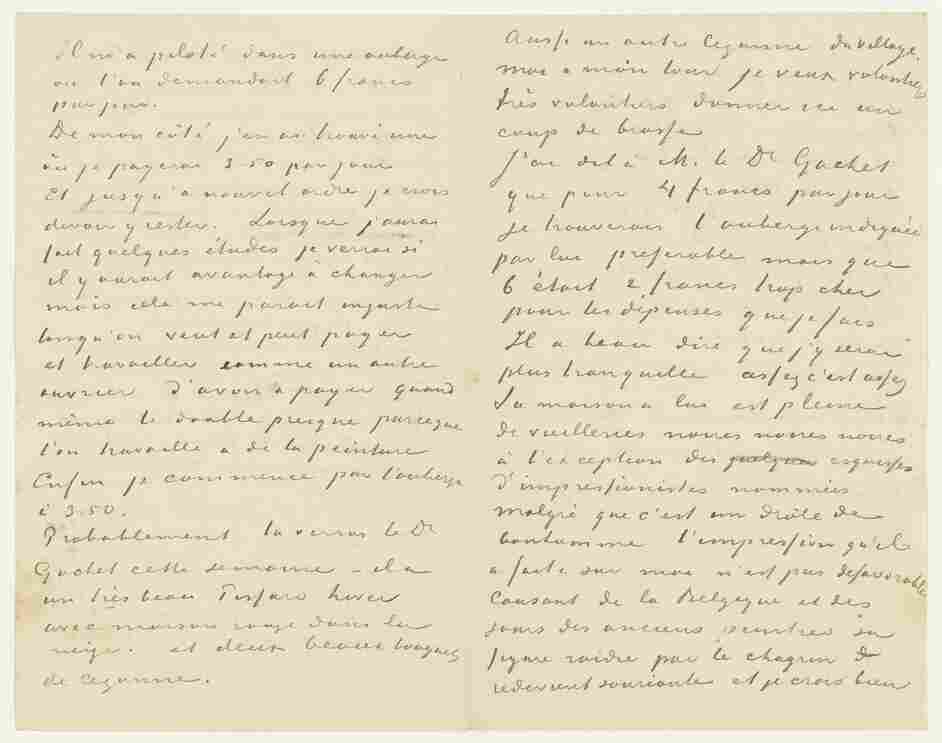 Il m'a piloté dans une auberge
où l'on demandait 6 francs
par jour.
De mon côté j'en ai trouvé une
où je payerai 3.50 par jour
Et jusqu'à nouvel ordre je crois
devoir y rester. Lorsque j'aurai
fait quelques études je verrai si
il y aurait avantage à changer
mais cela me parait injuste
lorsqu'on veut et peut payer
et travailler comme un autre
ouvrier d'avoir à payer quand
même le double presque parceque
l'on travaille a de la peinture
Enfin je commence par l'auberge
à 3.50.
Probablement tu verras le Dr
Gachet cette semaine – il a
un très beau Pissaro hiver
avec maison rouge dans la
neige. et deux beaux bouquets
de Cezanne.
Aussi un autre Cezanne du village.
moi a mon tour je veux volontiers
très volontiers donner ici un
coup de brosse
J'ai dit à M. le Dr Gachet
que pour 4 francs par jour
je trouverais l'auberge indiquée
par lui préferable mais que
6 était 2 francs trop cher
pour les dépenses que je fais
Il a beau dire que j'y serai
plus tranquille assez c'est assez
Sa maison a lui est pleine
de vieilleries noires noires noires
à l'exception des quelques esquisses
d'impressionistes nommées
malgré que c'est un drôle de
bonhomme l'impression qu'il
a faite sur moi n'est pas defavorable
Causant de la Belgique et des
jours des anciens peintres sa
figure raidie par le chagrin
redevient souriante et je crois bien